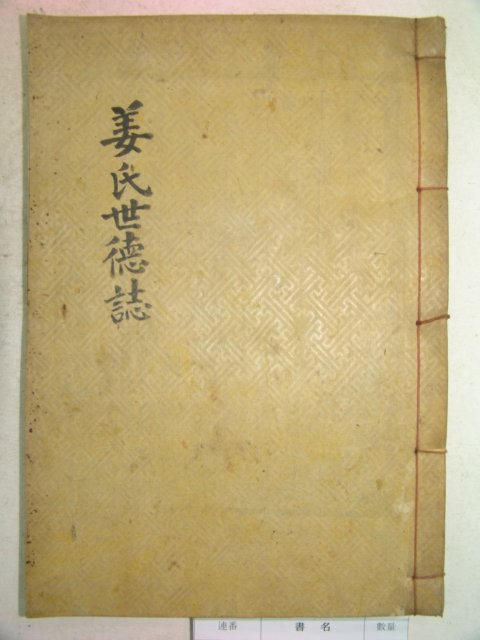 姜氏世德誌
連番 書名 數量